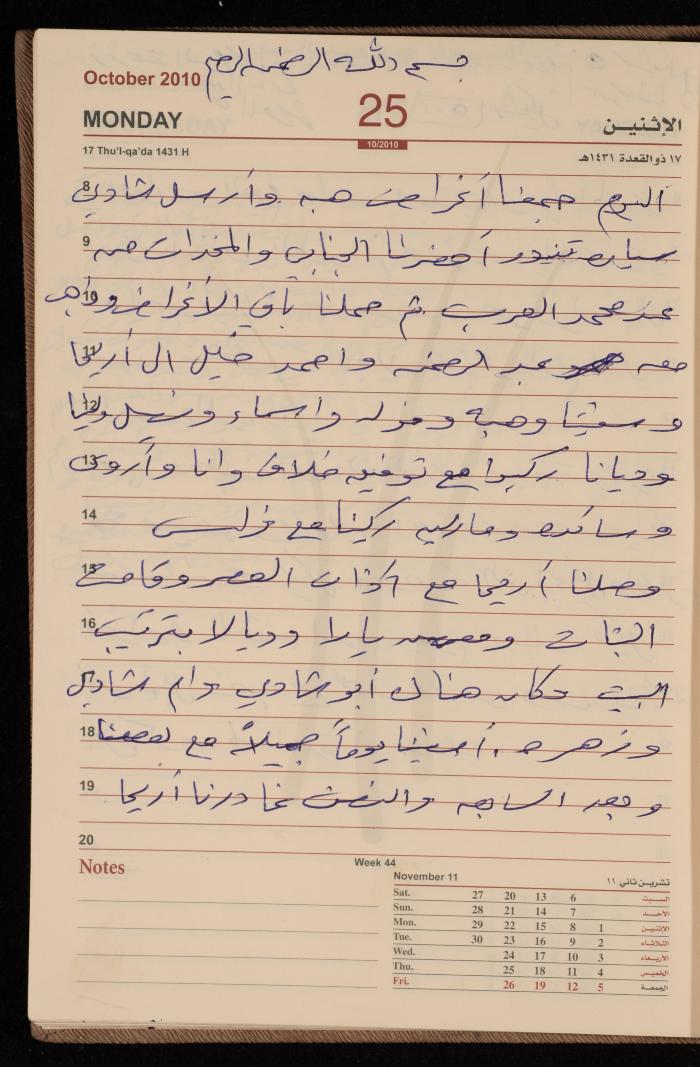 بسم الله الرحمن الرحيم
October 2010
25
MONDAY
الإثنين
10/2010
17 Thu'l-qa'da 1431 H
١٧ ذو القعدة ١٤٣١هـ
8
اليوم جمعنا أغراض هبه وأرسل شادي
9
سياره تندر أحضرنا الجنابي والمخدات من
10
عند محمد العرب ثم حملنا باقي الأغراض
11
معه عبد الرحمن واحمد خليل الى أريحا
12
وهبة واسماء
13
وديانا ركبوا مع توفيق وانا وأروى
14
وسائده ركبنا مع
15
وصلنا أريحا مع اذان العصر وقامت
16
البنات يارا وديالا بترتيب
17
البيت وكان هناك أبو شادي وام شادي
18
وزهره . أمضينا يوماً جميلاً مع بعضنا
19
وبعد السابعه والنصف غادرنا أريحا
20
Notes
Week 44
November 11
تشرين ثاني ١١
Sat. 27 20 13 6 السبت
Sun. 28 21 14 7 الأحد
Mon. 29 22 15 8 1 الإثنين
Tue. 30 23 16 9 2 الثلاثاء
Wed. 24 17 10 3 الأربعاء
Thu. 25 18 11 4 الخميس
Fri. 26 19 12 5 الجمعة